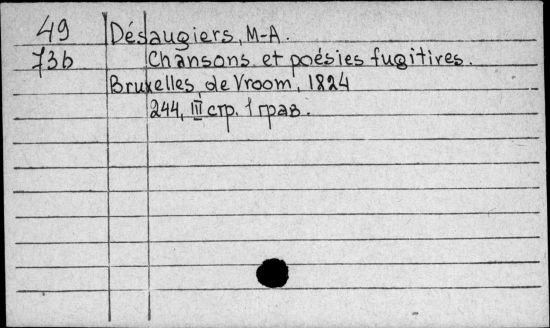 49 Désaugiers, M-A.
73b Chansons et poésies fugitires.
Bruxelles, de Vroom, 1824
244, III стр. 1 грав.